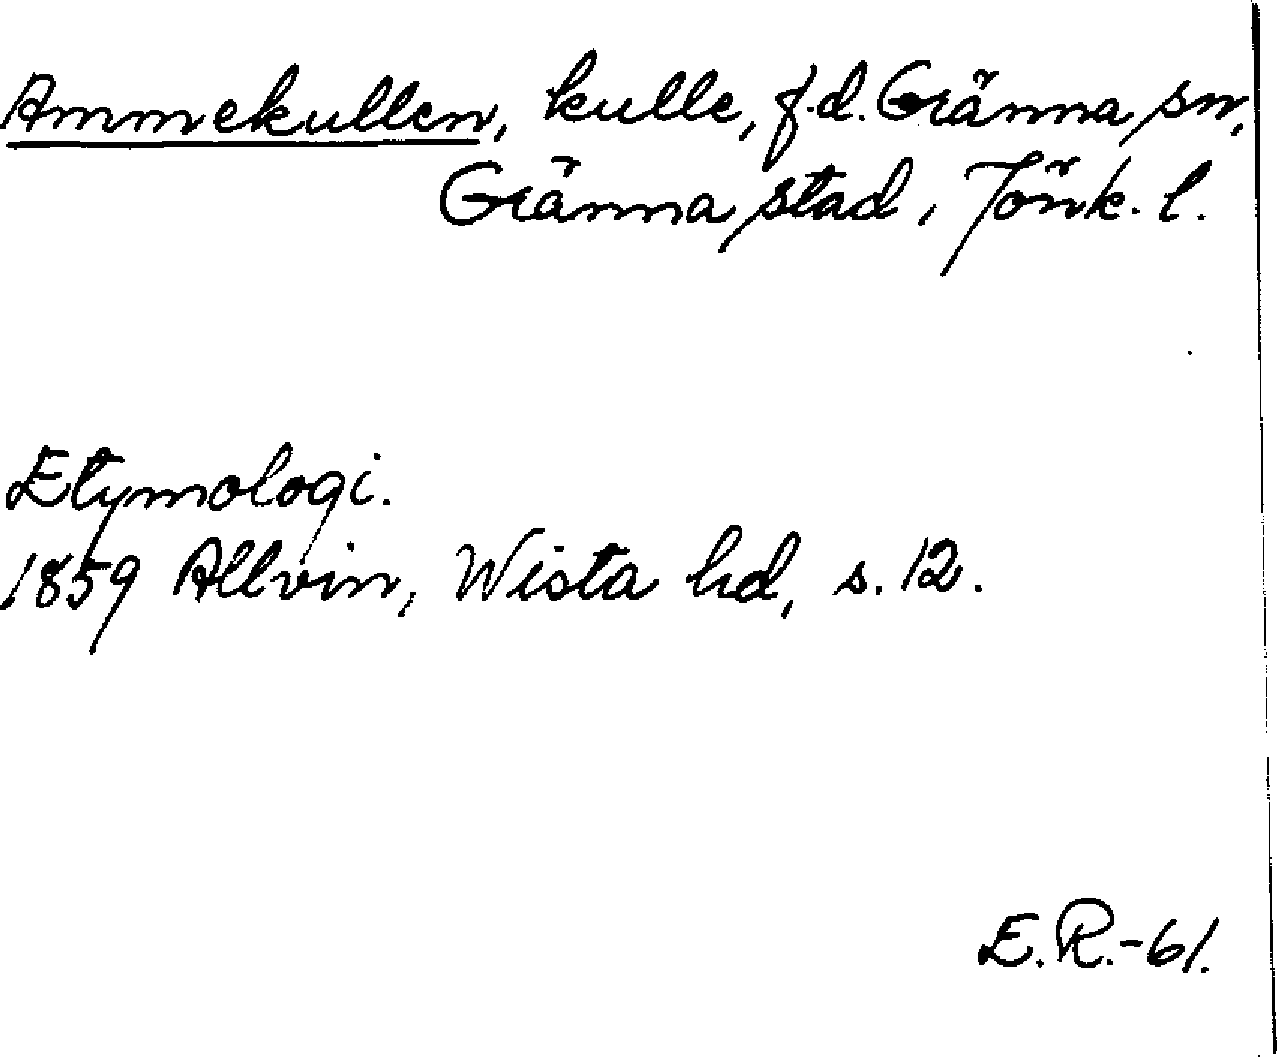 Ammekullen, kulle, f.d. Gränna sn,
Gränna stad, Jönk. l.
Etymologi.
1859 Allvin, Wista hd, s. 12.
E.R.-61.